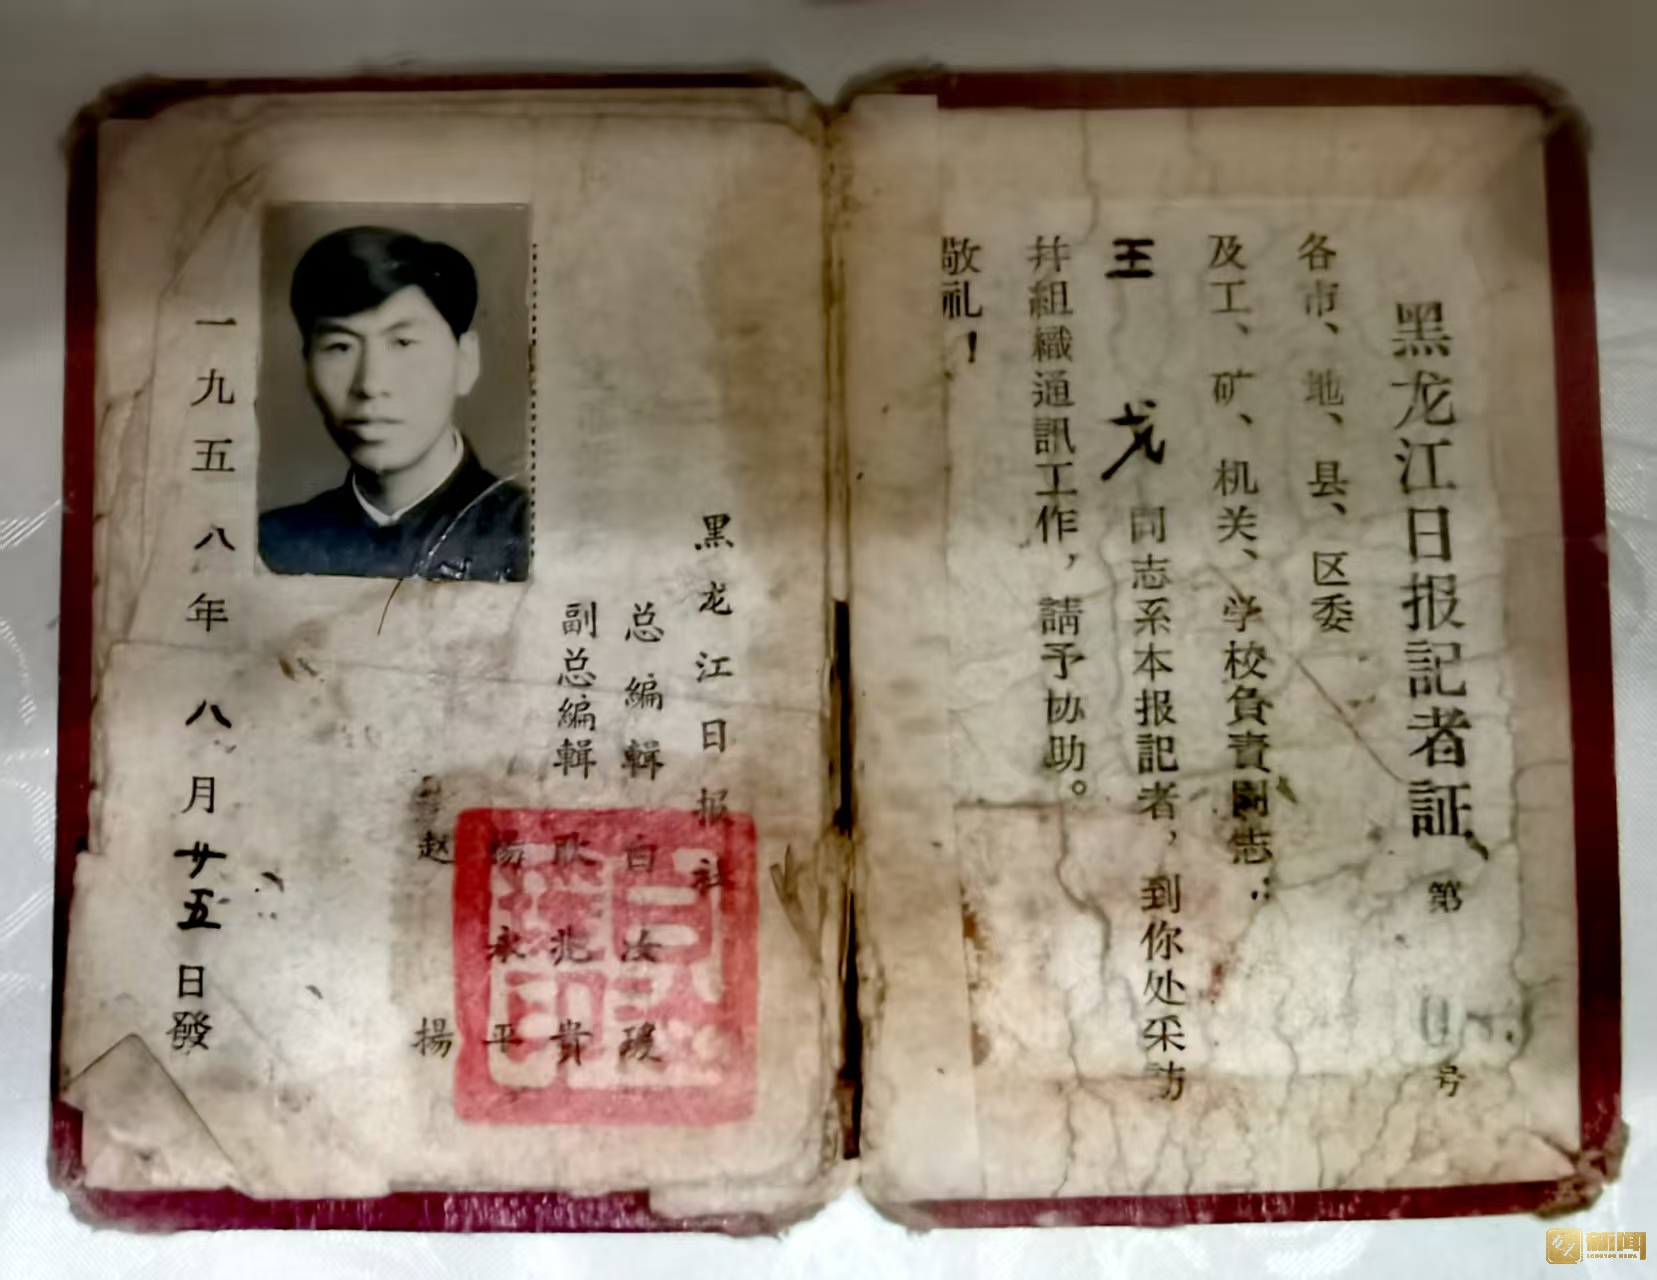 黑龙江日报記者証 第 号
各市、地、县、区委
及工、矿、机关、学校負責同志：
王戈同志系本报記者，到你处采訪
并組織通訊工作，請予协助。
敬礼！
黑龙江日报社
总編輯 白汝瑗
副总編輯 耿兆貴
楊永平
赵揚
一九五八年八月廿五日發
新闻